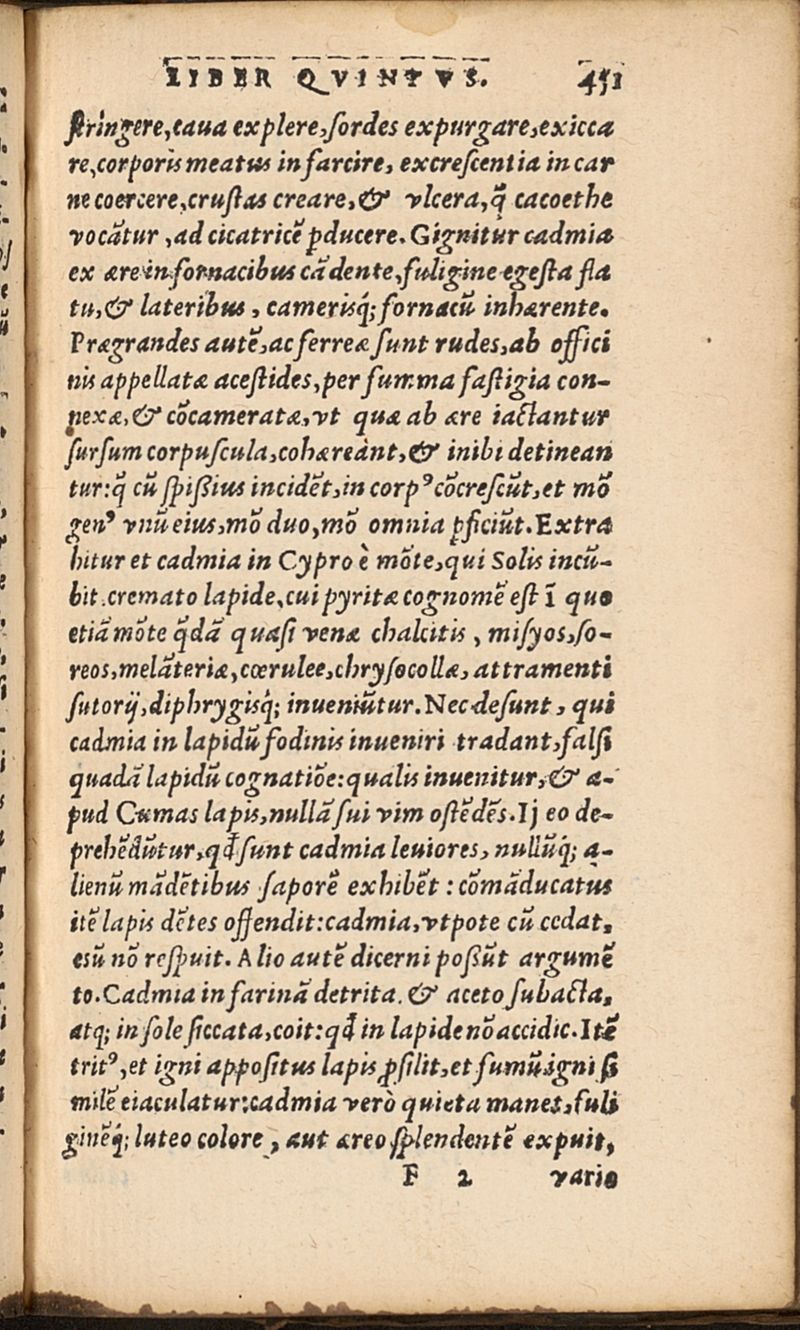 LIBER QVINTVS. 451
ſtringere, caua explere, ſordes expurgare, exicca
re, corporis meatus infarcire, excreſcentia in car
ne coercere, cruſtas creare, & vlcera, q̃ cacoethe
vocãtur, ad cicatricẽ ꝓducere. Gignitur cadmia
ex ære in fornacibus cãdente, fuligine egeſta fla
tu, & lateribus, cameriſq́; fornacũ inhærente.
Prægrandes autẽ, ac ferreæ ſunt rudes, ab offici
nis appellatæ aceſtides, per ſumma faſtigia con-
nexæ, & cõcameratæ, vt quæ ab ære iactantur
ſurſum corpuſcula, cohæreànt, & inibi detinean
tur: q̃ cũ ſpißius incidẽt, in corpꝰ cõcreſcũt, et mõ
genꝰ vnũ eius, mõ duo, mõ omnia ꝑficiũt. Extra
hitur et cadmia in Cypro è mõte, qui Solis incũ-
bit. cremato lapide, cui pyritæ cognomẽ eſt ĩ quo
etiã mõte q̃dã quaſi venæ chalcitis, miſyos, ſo-
reos, melãteriæ, cœrulee, chryſocollæ, attramenti
ſutorij, diphrygiſq́; inueniũtur. Nec deſunt, qui
cadmia in lapidũ fodinis inueniri tradant, falſi
quadã lapidũ cognatiõe: qualis inuenitur, & a-
pud Cumas lapis, nullã ſui vim oſtẽdẽs. Ij eo de-
prehẽdũtur, qđ ſunt cadmia leuiores, nullũq́; a-
lienũ mãdẽtibus ſaporẽ exhibẽt: cõmãducatus
itẽ lapis dẽtes offendit: cadmia, vtpote cũ cedat,
eſũ nõ reſpuit. Alio autẽ dicerni poßũt argumẽ
to. Cadmia in farinã detrita. & aceto ſubacta,
atq; in ſole ſiccata, coit: qđ in lapide nõ accidic. Itẽ
tritꝰ, et igni appoſitus lapis ꝓſilit, et fumũ igni ſi
milẽ eiaculatur: cadmia verò quieta manet, fuli
ginẽq́; luteo colore, aut æreo ſplendentẽ expuit,
F 2 vario